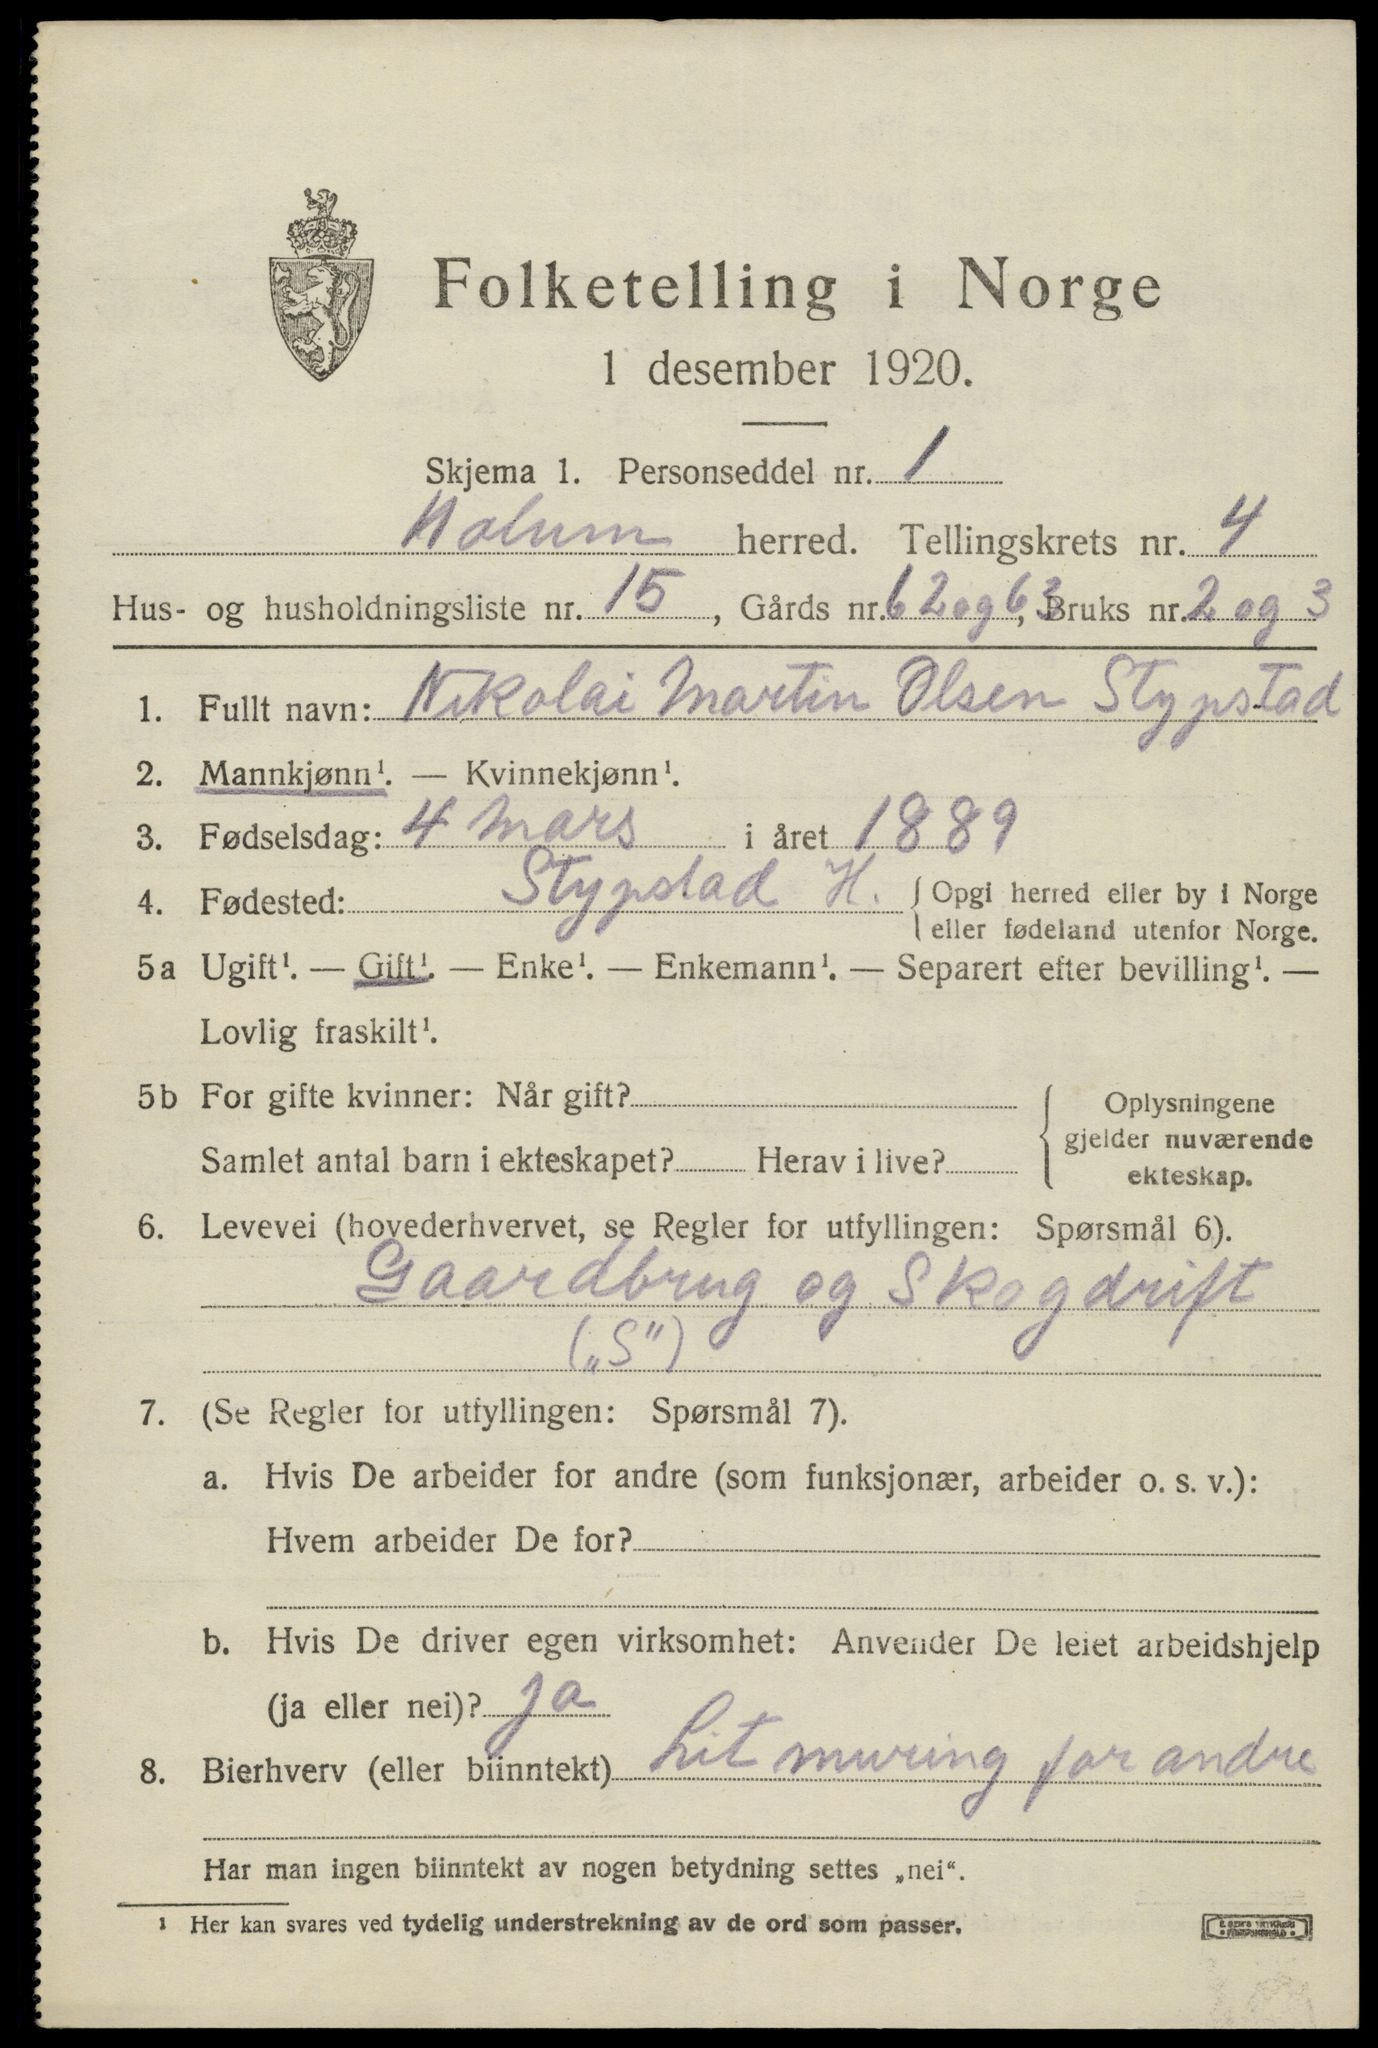 Folketelling i Norge
1 desember 1920.
Skjema 1. Personseddel nr. 1
Holum herred. Tellingskrets nr. 4
Hus- og husholdningsliste nr. 15, Gårds nr. 62 og 63, Bruks nr. 2 og 3
1. Fullt navn: Nikolai Martin Olsen Stypstad
2. Mannkjønn¹. — Kvinnekjønn¹.
3. Fødselsdag: 4 Mars i året 1889
4. Fødested: Stypstad H. { Opgi herred eller by i Norge
eller fødeland utenfor Norge.
5a Ugift¹. — Gift¹. — Enke¹. — Enkemann¹. — Separert efter bevilling¹. —
Lovlig fraskilt¹.
5b For gifte kvinner: Når gift?
Samlet antal barn i ekteskapet? Herav i live?
{ Oplysningene
gjelder nuværende
ekteskap.
6. Levevei (hovederhvervet, se Regler for utfyllingen: Spørsmål 6).
Gaardbrug og Skogdrift
(„S")
7. (Se Regler for utfyllingen: Spørsmål 7).
a. Hvis De arbeider for andre (som funksjonær, arbeider o. s. v.):
Hvem arbeider De for?
b. Hvis De driver egen virksomhet: Anvender De leiet arbeidshjelp
(ja eller nei)? ja
8. Bierhverv (eller biinntekt) Lit muring for andre
Har man ingen biinntekt av nogen betydning settes „nei“.
1 Her kan svares ved tydelig understrekning av de ord som passer.